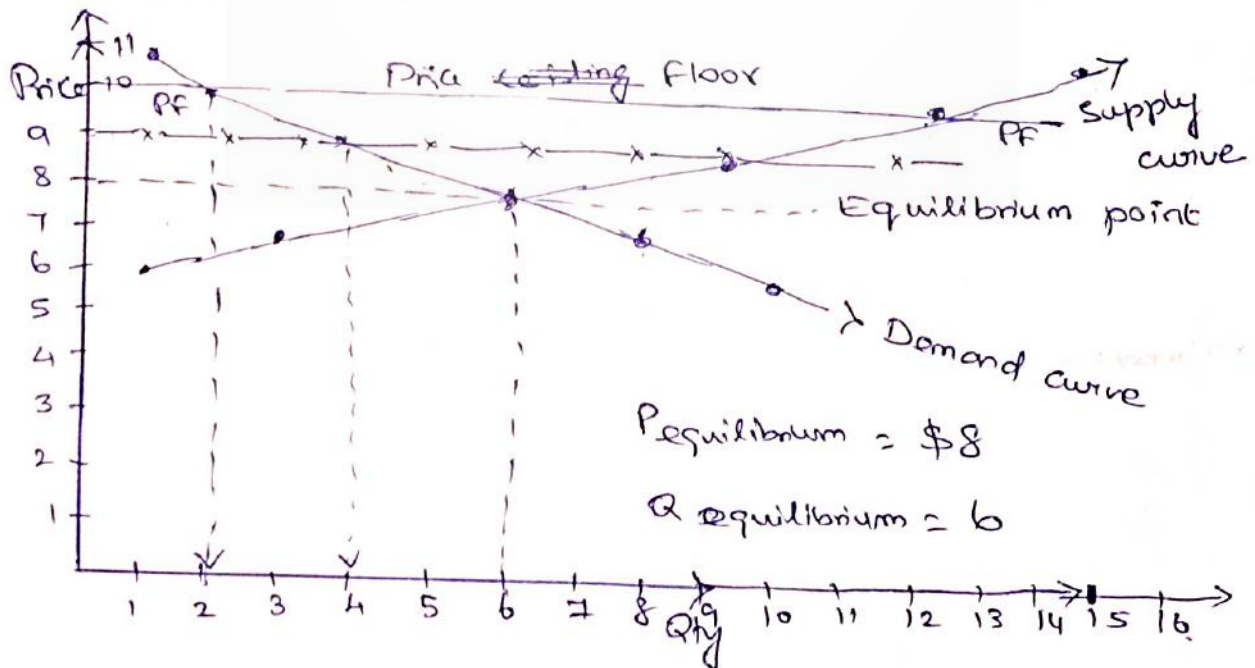 11
Price 10
Price ceiling Floor
PF
PF
Supply
curve
9
8
Equilibrium point
7
6
5
Demand curve
4
3
P equilibrium = $8
2
Q equilibrium = 6
1
1 2 3 4 5 6 7 8 9 10 11 12 13 14 15 16
Qty